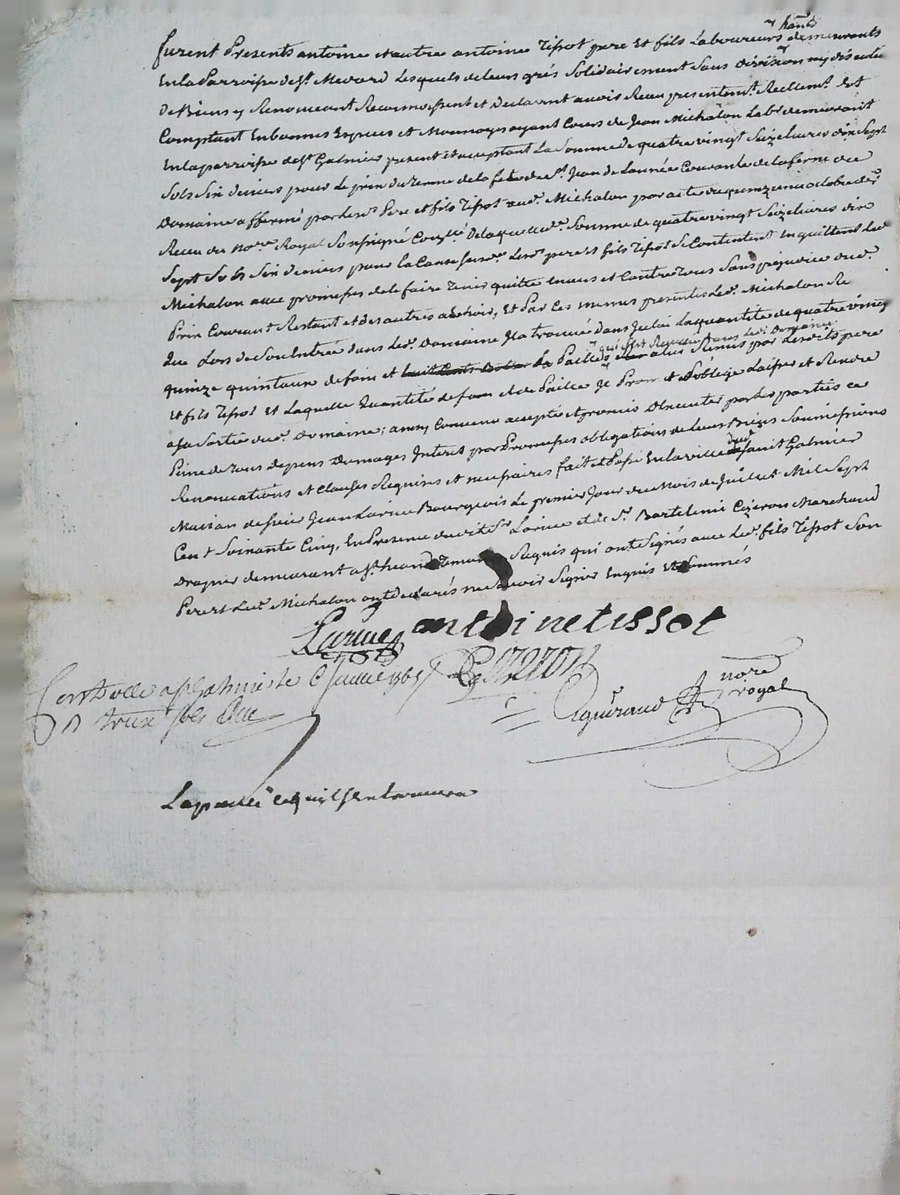 furent Presents antoine et autre antoine Tissot pere Et fils Laboureurs demeurants
En la Parroisse de St. Medard Lesquels de leurs grés Solidairement Sans division ny discution
De Biens y Renonceant Reconnoissent et declarent avoir Receu presentemt. Reellemt. Et
Comptant En bonnes Especes et Monnoyes ayant Cours de Jean Michalon Labr. demeurant
En la parroisse de St. Galmier present et acceptant La Somme de quatre vingt Seize livres dix Sept
Sols Six deniers pour Le prix du terme de la fete de St. Jean de L'année Courante de la ferme du
Domaine affermé par les d. Pere et fils Tissot aud. Michalon par acte du quinze octobre der.
Receu du Nore. Royal Soussigné de laquelle Somme de quatre vingt Seize livres dix
Sept Sols Six deniers pour la Cause Susd. Les d. pere et fils Tissot Se Contentent En quittent Led.
Michalon avec promesses de le faire Tenir quitte envers et Contre Tous Sans prejudice aud.
Prix Courant Restant et des autres a Echoir, Et Par Ces memes presentes Led. Michalon
que Lors de Son Entrée dans Led. Domaine Il a trouvée dans Icelui La quantité de quatre vingt
quinze quintaux de foin et La Paille qui Remis par lesdits pere
Et fils Tissot Et Laquelle quantité de foin et de Paille Il Promet et S'oblige Laisser et Rendre
a Sa Sortie dud. Domaine; ainsy Convenu accepté et promis Observer par les parties a
Peine de Tous depens Domages Interet par Promesses obligations de leurs Biens Soumissions
Renonciations et Clauses Requises et necessaires fait et Passé En la ville de Saint Galmier
Maison de Sieur Jean Larue Bourgeois Le premier Jour du Mois de Juillet Mil Sept
Cent Soixante Cinq, En Presence dudit Sr. Larue et de Sr. Bartelemi Cizeron Marchand
Drapier demeurant a St. Requis qui ont Signés avec Led. fils Tissot Son
Pere et Led. Michalon ont declarés ne Scavoir Signer Enquis et Sommés
Larue antoine tissot
Cizeron
Controllé a St. Galmier le 6 Juillet 1765
R treize sols
nore royal